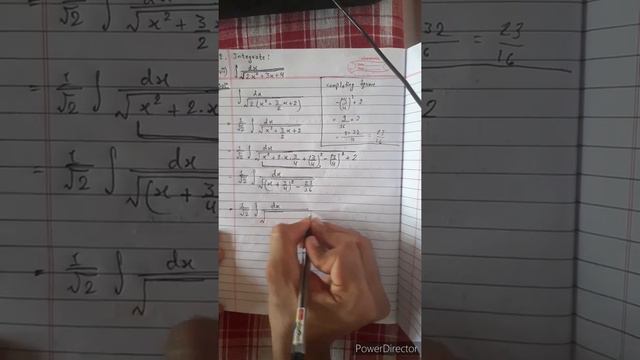 2. Integrate:
∫ dx / √(2x² + 3x + 4)
∫ dx / √(2(x² + 3/2 x + 2))
= 1/√2 ∫ dx / √(x² + 3/2 x + 2)
= 1/√2 ∫ dx / √(x² + 2·x·3/4 + (3/4)² − (3/4)² + 2)
= 1/√2 ∫ dx / √((x + 3/4)² − 23/16)
= 1/√2 ∫ dx / √
completing square
−(3/4)² + 2
= 9/16 + 2
= 9+32 / 16 = 23/16
PowerDirector